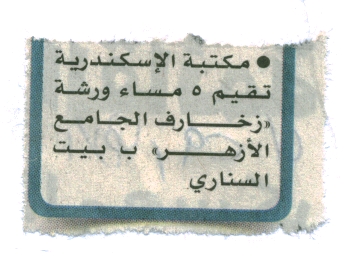 ● مكتبة الإسكندرية
تقيم ٥ مساء ورشة
«زخارف الجامع
الأزهر» ب بيت
السناري